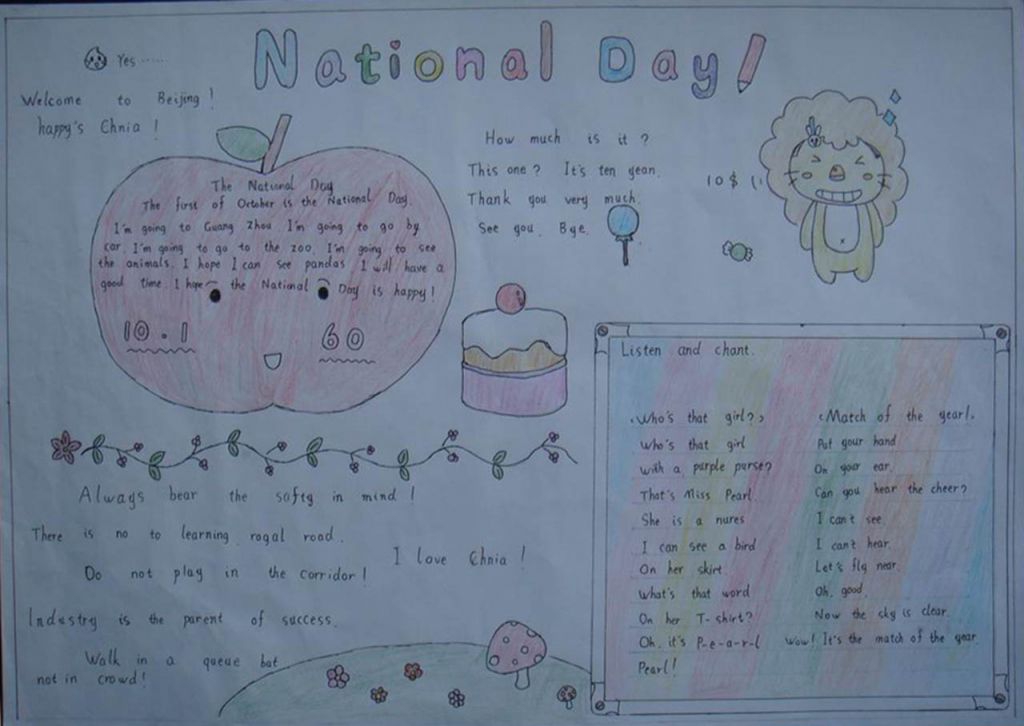 National Day!
Yes ......
Welcome to Beijing!
happy's Chnia!
The National Day
The first of October is the National Day.
I'm going to Guang Zhou I'm going to go by
car. I'm going to go to the zoo. I'm going to see
the animals. I hope I can see pandas I will have a
good time I hope the National Day is happy!
10.1
60
How much is it?
This one? It's ten yean.
Thank you very much.
See you. Bye.
10$
Listen and chant.
<Who's that girl?>
Who's that girl
With a purple purse?
That's Miss Pearl.
She is a nures
I can see a bird
On her skirt
What's that word
On her T-shirt?
Oh, it's P-e-a-r-l
Pearl!
<Match of the year!.
Put your hand
On your ear.
Can you hear the cheer?
I can't see
I can't hear.
Let's fly near.
Oh, good.
Now the sky is clear.
Wow! It's the match of the year.
Always bear the safty in mind!
There is no to learning rogal road.
I love Chnia!
Do not play in the corridor!
Industry is the parent of success.
Walk in a queue but
not in crowd!